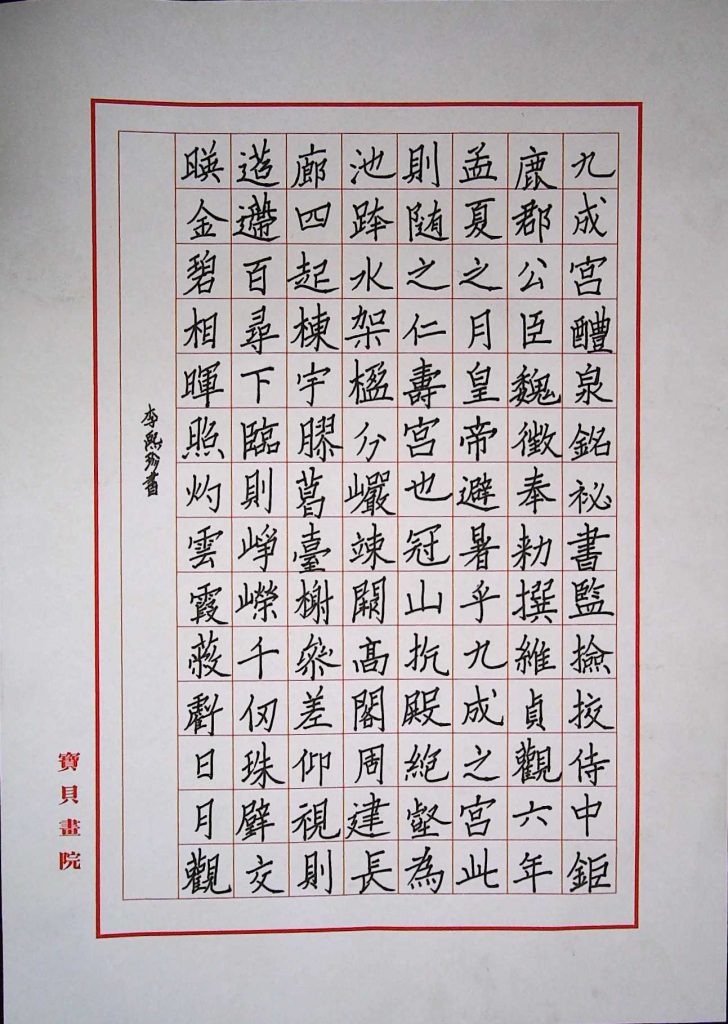 九成宮醴泉銘祕書監撿挍侍中鉅
鹿郡公臣魏徵奉勑撰維貞觀六年
孟夏之月皇帝避暑乎九成之宮此
則随之仁壽宮也冠山抗殿絶壑為
池跨水架楹分巖竦闕髙閣周建長
廊四起棟宇膠葛臺榭叅差仰視則
迢遰百尋下臨則崢嶸千仞珠璧交
暎金碧相暉照灼雲霞蔽虧日月觀
李熙珍書
寶貝畫院